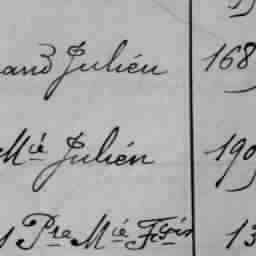 and Julien 168
Mié Julién 190
Pre Mié Fçois 13